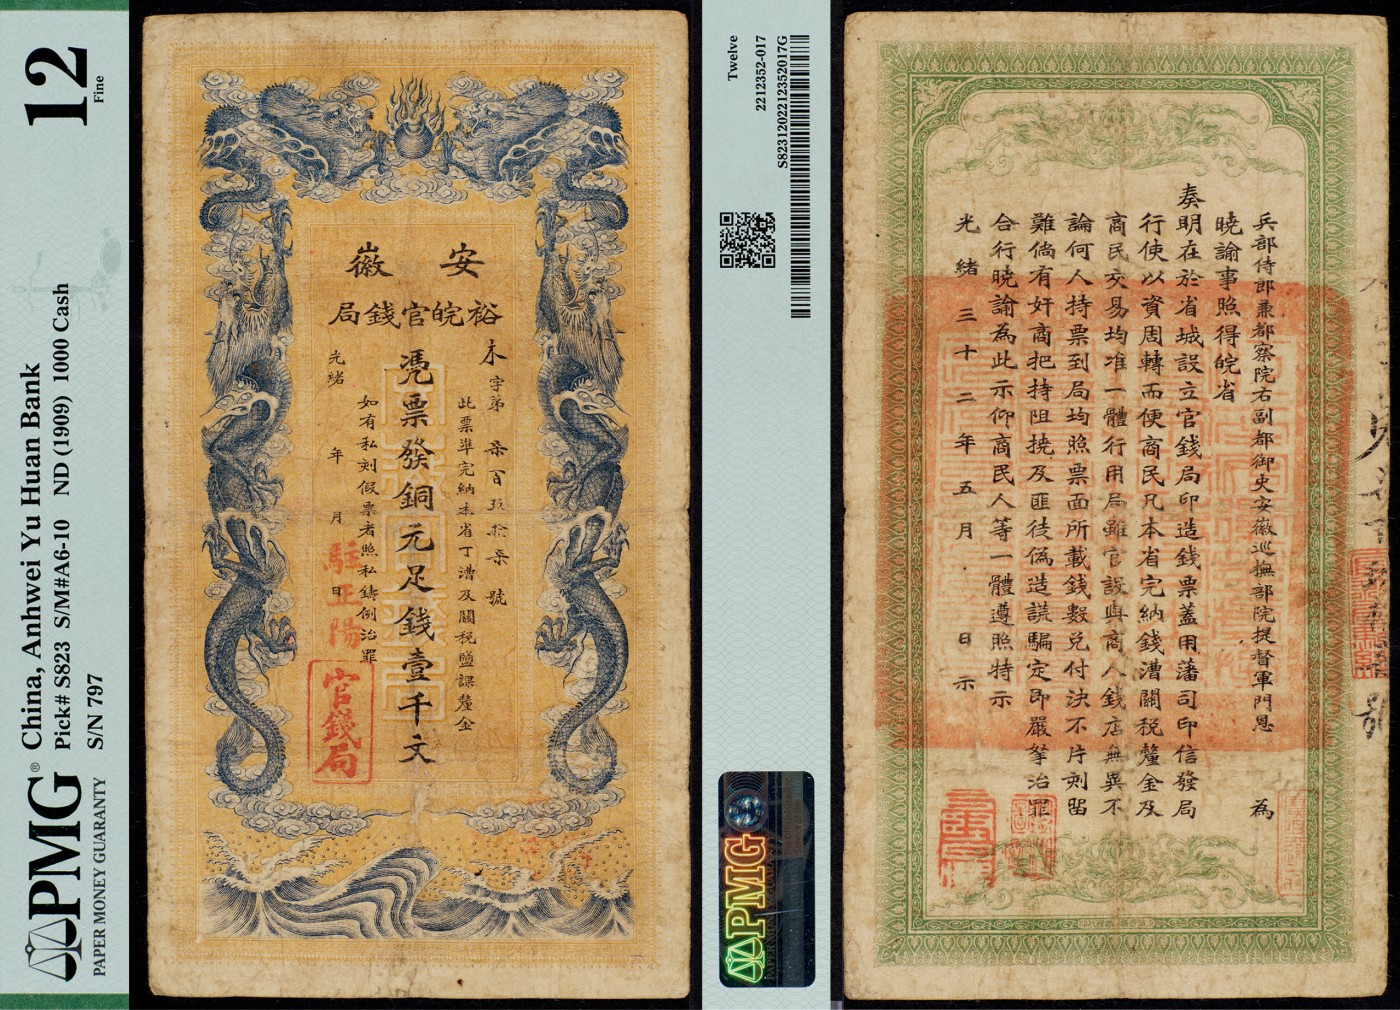 12
Fine
China, Anhwei Yu Huan Bank
Pick# S823 S/M#A6-10 ND (1909) 1000 Cash
S/N 797
PMG®
PAPER MONEY GUARANTY
安徽
裕皖官錢局
木字第柒百玖拾柒號
此票準完納本省丁漕及關稅鹽課釐金
憑票發銅元足錢壹千文
如有私刻假票者照私鑄例治罪
光緒 年 月 日
駐正陽
官錢局
Twelve
2212352-017
S82312022123520170G
PMG
兵部侍郎兼都察院右副都御史安徽巡撫部院提督軍門恩 為
曉諭事照得皖省
奏明在於省城設立官錢局印造錢票蓋用藩司印信發局
行使以資周轉而便商民凡本省完納錢漕關稅釐金及
商民交易均准一體行用局雖官設與商人錢店無異不
論何人持票到局均照票面所載錢數兌付決不片刻留
難倘有奸商把持阻撓及匪徒偽造謊騙定即嚴拏治罪
合行曉諭為此示仰商民人等一體遵照特示
光緒三十二年五月 日示